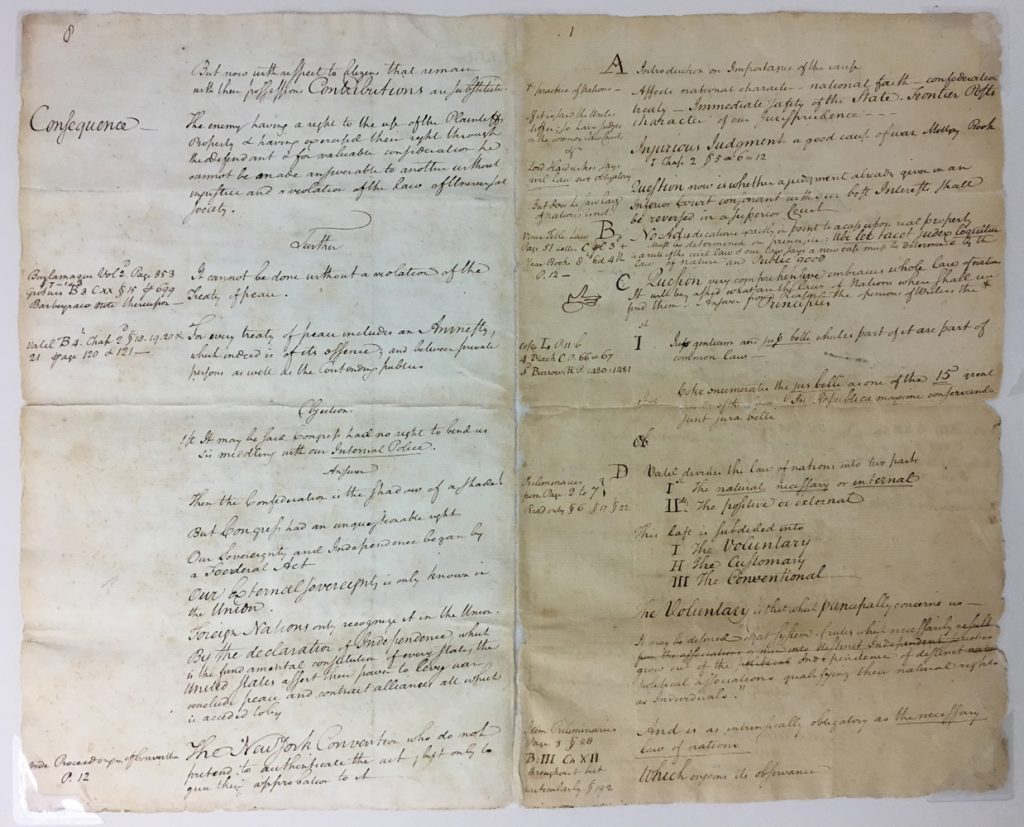 8
But now with respect to Citizens that remain
with their possessions Contributions are substitute.
Consequence —
The enemy having a right to the use of the Plaintiffs
Property & having exercised their right through
the defendant & for valuable consideration he
cannot be made answerable to another without
injustice and a violation of the law of Universal
society.
Further
Burlamaqui Vol 2. Page 353
Grotius B 3 C XX § 15 699
Barbeyracs note thereupon —
It cannot be done without a violation of the
Treaty of peace.
Vatel B 4. Chap 2 § 18. 19. 20 &
21 Page 120 & 121 —
For every treaty of peace includes an Amnesty,
which indeed is of its essence; and between private
persons as well as the contending publics
Objection
1st It may be said Congress had no right to bind us
in middling with our Internal Police.
Answer
Then the Confederation is the shadow of a shade!
But Congress had an unquestionable right
Our Sovereignty and Independence began by
a Foederal Act
Our External sovereignty is only known in
the Union.
Foreign Nations only recognize it in the Union.
By the declaration of Independence, which
is the fundamental constitution of every state, the
United States assert their power to levy war
conclude peace and contract alliances all which
is acceded to by
vide Proceedings of Convention
P. 12
The New York Convention who do not
pretend to authenticate the act, but only to
give their approbation to it
1
A Introduction on Importance of the cause
+ practice of Nations —
Affects national character — national faith — confederation
treaty — Immediate safety of the State. Frontier Posts
character of our Jurisprudence - - -
Injurious Judgment a good cause of war Molloy Book
I Chap 2 § 5 12
Lord Hardwicke says
civil law not obligatory
But does he say Law
of Nations is not
Question now is whether a judgment already given in an
Inferior Court consonant with our best Interests shall
be reversed in a superior Court
B No Adjudications exactly in point to a case upon real property
must be determined on principle; Ubi lex tacet Judex loquitur
is a rule of the civil law & our law says a new case must be determined by the
law of nature and Public good
Viner Title Law
Page 51 Letter C pl 3 +
Year Books 8 Ed 4
P. 12 —
C Question very comprehensive embraces whole law of nations
It will be asked what are the laws of Nations where shall we
find them? Answer from Reason the opinion of Writers the +
Principles
1st
Coke L. P 11 b
4 Black C P. 66 & 67
3 Burrows R P. 1480 - 1481
I Jus gentium and jus belli whole & part of it are part of
common law —
Coke enumerates the jus belli as one of the 15 great
of the In Republica maxime conservanda
sunt jura belli
D Vatel divides the law of nations into two parts
Preliminaries
from Page 2 to 7
Read only § 6 § 17 § 22
Ist The natural necessary or internal
II The positive or external
This last is subdivided into
I The Voluntary
II The Customary
III The Conventional
The Voluntary is that which principally concerns us —
It may be defined that system of rules which necessarily result
from the associations of men into distinct Independent
grow out of the political Independence of distinct
political associations qualifying their natural rights
as Individuals."
Item Preliminaries
Page 8 § 28
B. III Ch XII
throughout but
particularly § 192
And is as intrinsically obligatory as the necessary
law of nations
Which enjoins its observance